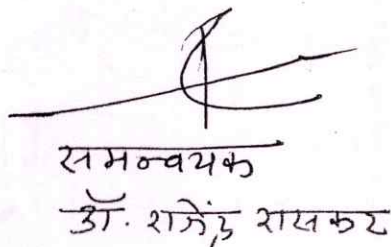 समन्वयक
डॉ. राजेंद्र रासकर